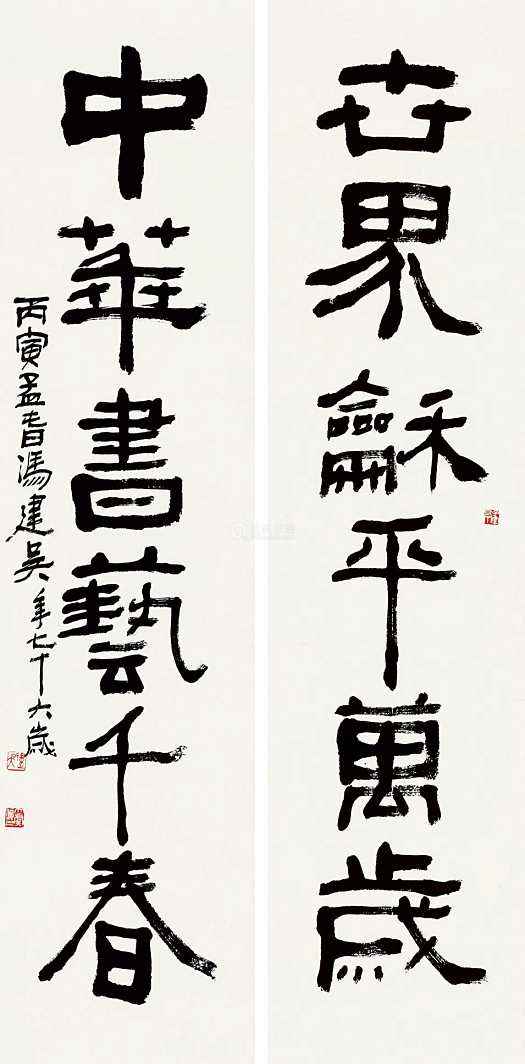 世界龢平萬歲
中華書藝千春
丙寅孟春馮建吳年七十六歲